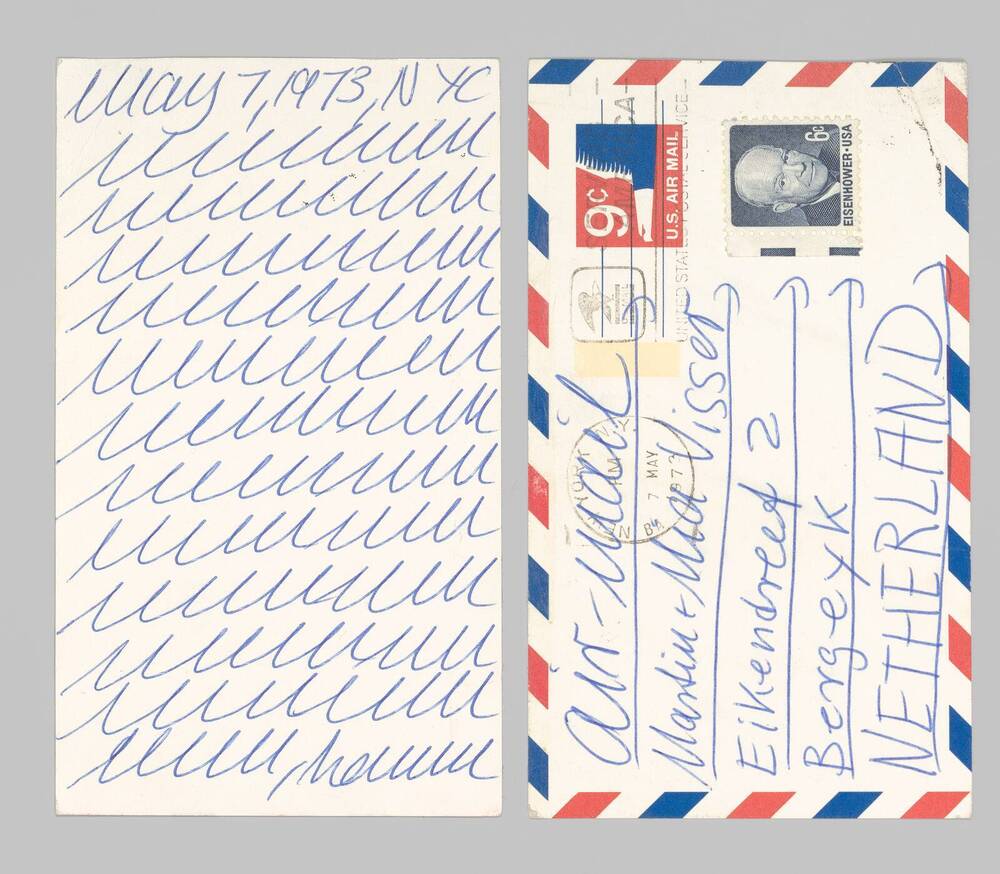 May 7, 1973, NYC
hanne
9c
U.S. AIR MAIL
6c
EISENHOWER · USA
UNITED STATES POSTAL SERVICE
NEW YORK, N.Y.
PM
7 MAY
1973
Air-Mail
Martin + Mia Visser
Eikendreef 2
Berg-eyk
NETHERLAND